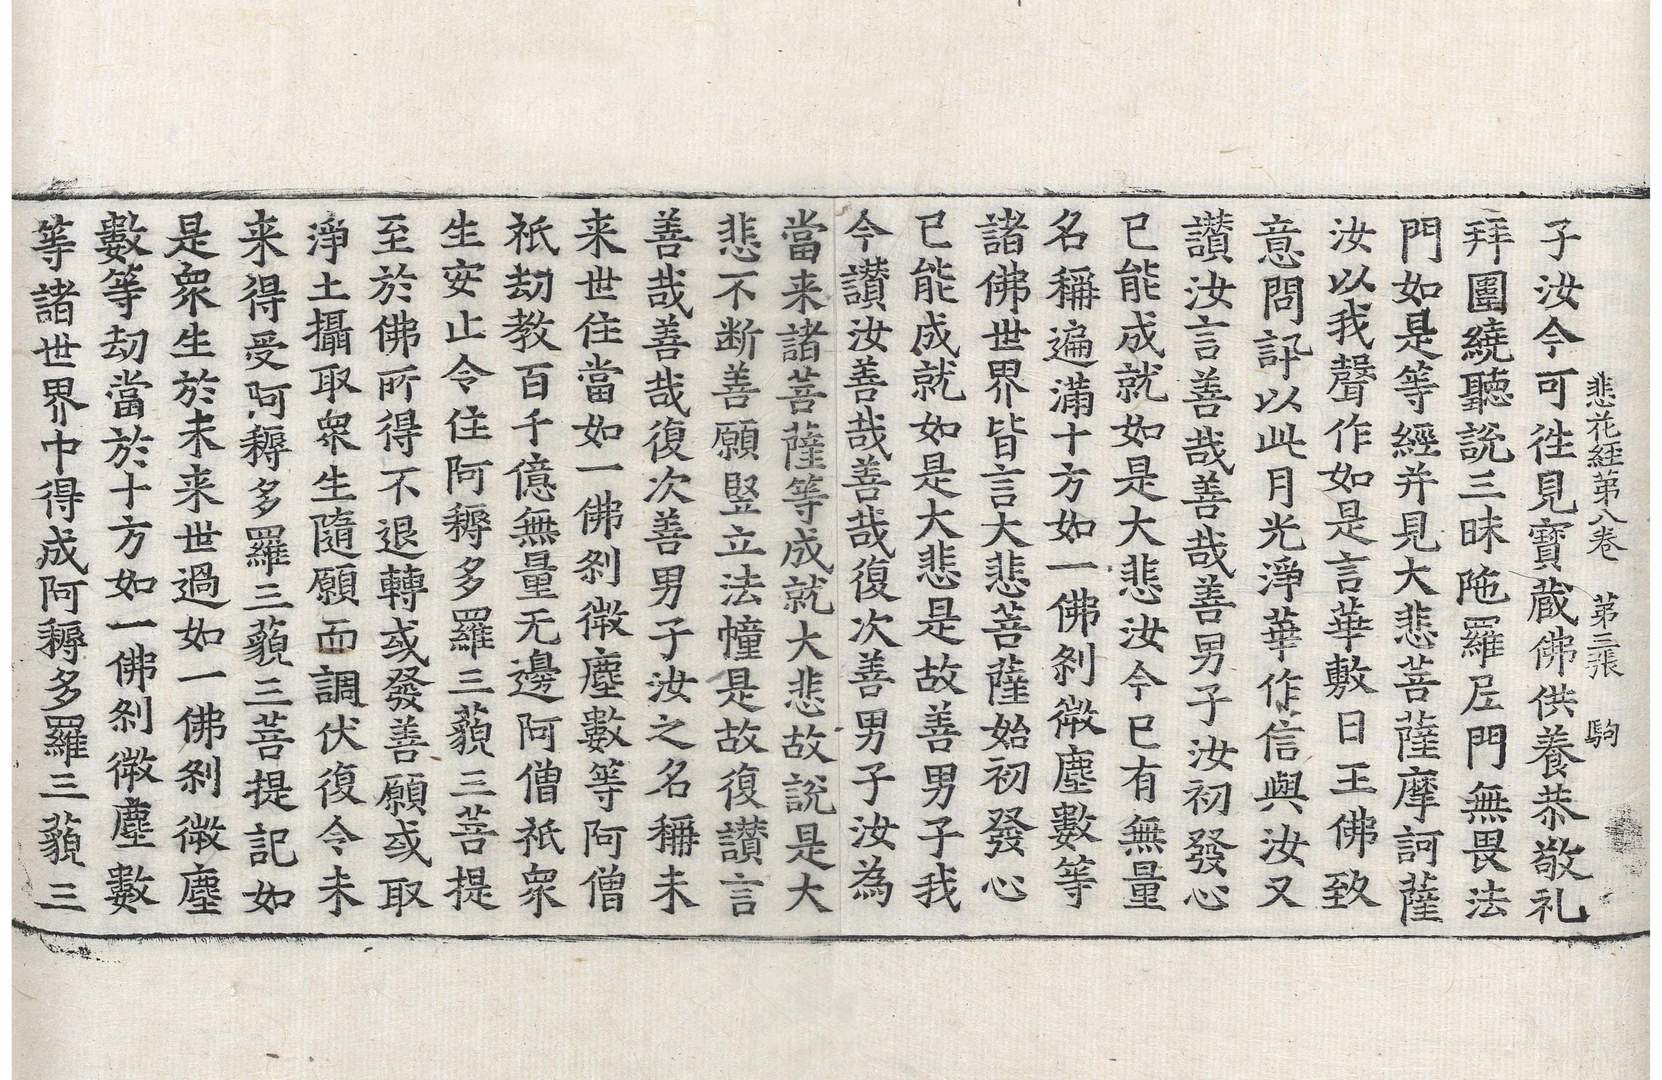 悲花經第八卷 第三張 駒
子汝今可徃見寶蔵佛供養恭敬礼
拜圍繞聽說三昧陁羅尼門無畏法
門如是等經并見大悲菩薩摩訶薩
汝以我聲作如是言華敷日王佛致
意問訊以此月光淨華作信與汝又
讃汝言善哉善哉善男子汝初發心
已能成就如是大悲汝今已有無量
名稱遍滿十方如一佛刹微塵數等
諸佛世界皆言大悲菩薩始初發心
已能成就如是大悲是故善男子我
今讃汝善哉善哉復次善男子汝為
當来諸菩薩等成就大悲故說是大
悲不断善願竪立法幢是故復讃言
善哉善哉復次善男子汝之名稱未
来世住當如一佛刹微塵數等阿僧
祇劫教百千億無量无邊阿僧祇衆
生安止令住阿耨多羅三藐三菩提
至於佛所得不退轉或發善願或取
淨土攝取衆生隨願而調伏復令未
来得受阿耨多羅三藐三菩提記如
是衆生於未来世過如一佛刹微塵
數等劫當於十方如一佛刹微塵數
等諸世界中得成阿耨多羅三藐三